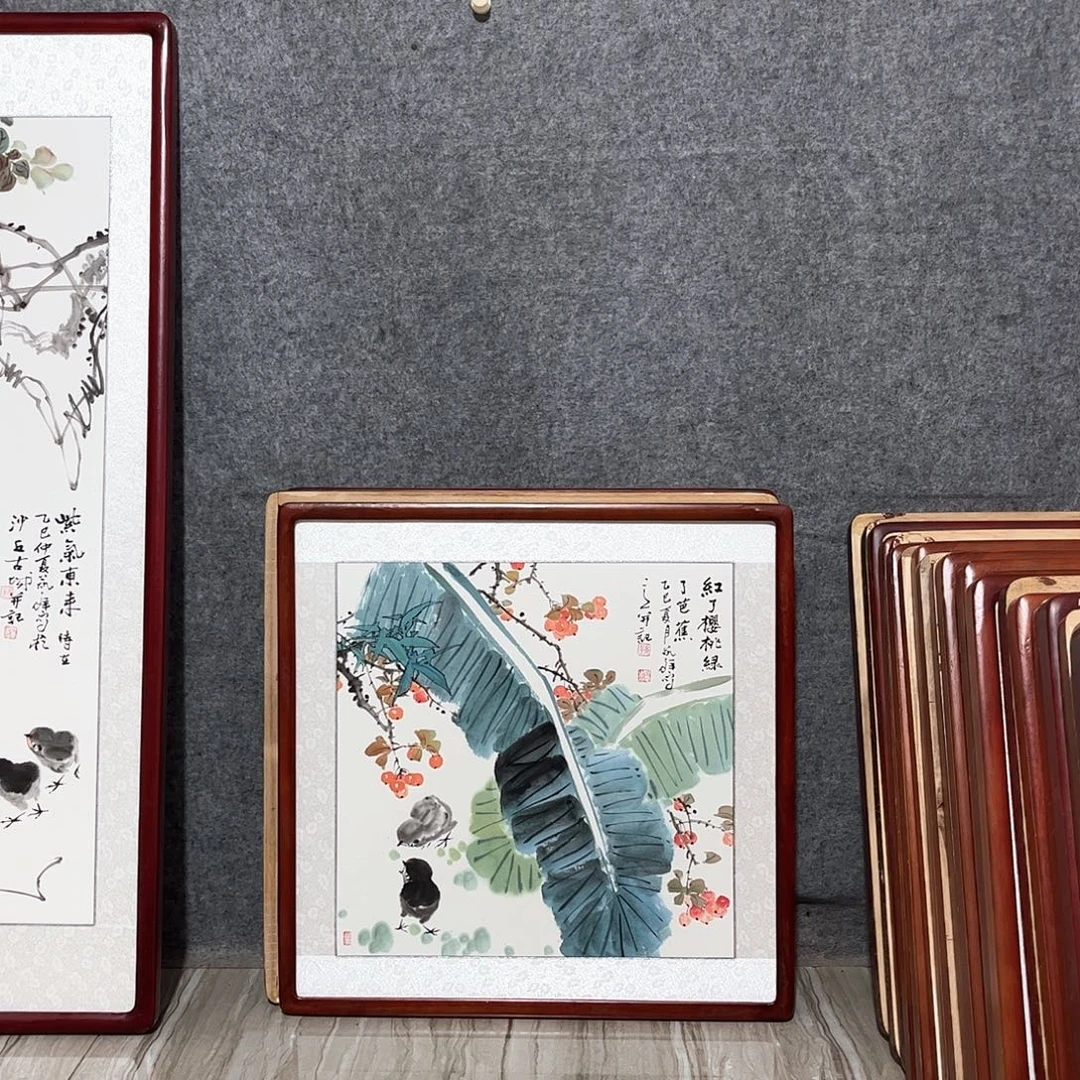 紫氣東来 時在
乙巳仲夏
沙丘古
并記
紅了櫻桃綠
了芭蕉
乙巳夏月
并記